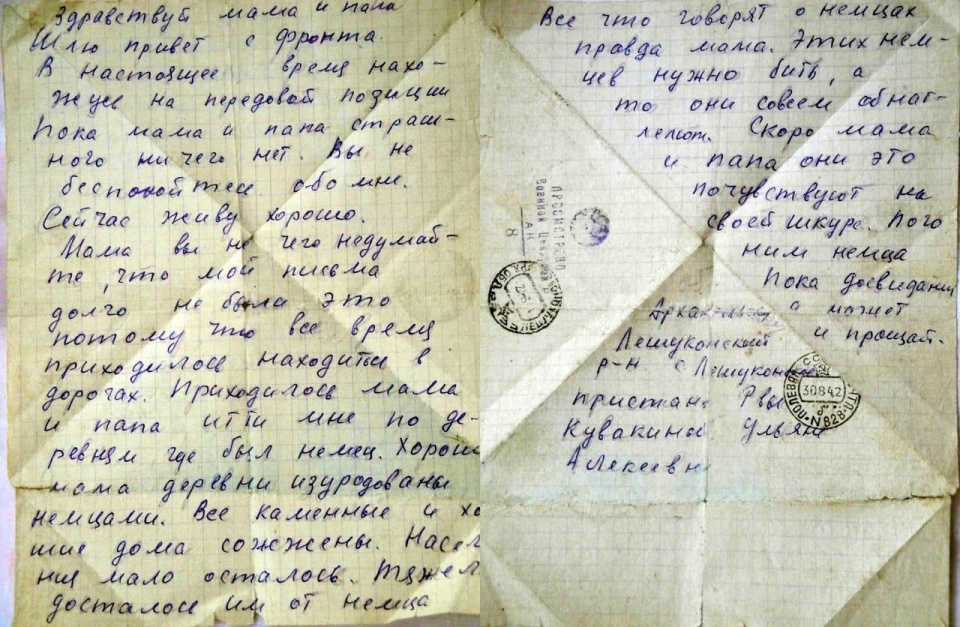 Здравствуй мама и папа
Шлю привет с фронта.
В настоящее время нахо-
жусь на передовой позиции
Пока мама и папа страш-
ного ничего нет. Вы не
беспокойтесь обо мне.
Сейчас живу хорошо.
Мама вы не чего недумай-
те, что мои письма
долго не была это
потому что все время
приходилось находиться в
дорогах. Приходилось мама
и папа итти мне по де-
ревням где был немец. Хорош
мама деревни изуродованы
немцами. Все каменные и хо
шие дома сожжены. Насел
ния мало осталось. Тяжел
досталось им от немца
Все что говорят о немцах
правда мама. Этих нем-
цев нужно бить, а
то они совсем обнаг-
леют. Скоро мама
и папа они это
почувствуют на
своей шкуре. Пого
ним немца
Пока досвидания
а может
и прощай.
ПРОСМОТРЕНО
Военной Цензурой
8
Лешуконский
р-н с Лешуконск
пристань
Кувакиной Ульяне
Алексеевн
ПОЛЕВАЯ ПОЧТА
30842
N 828